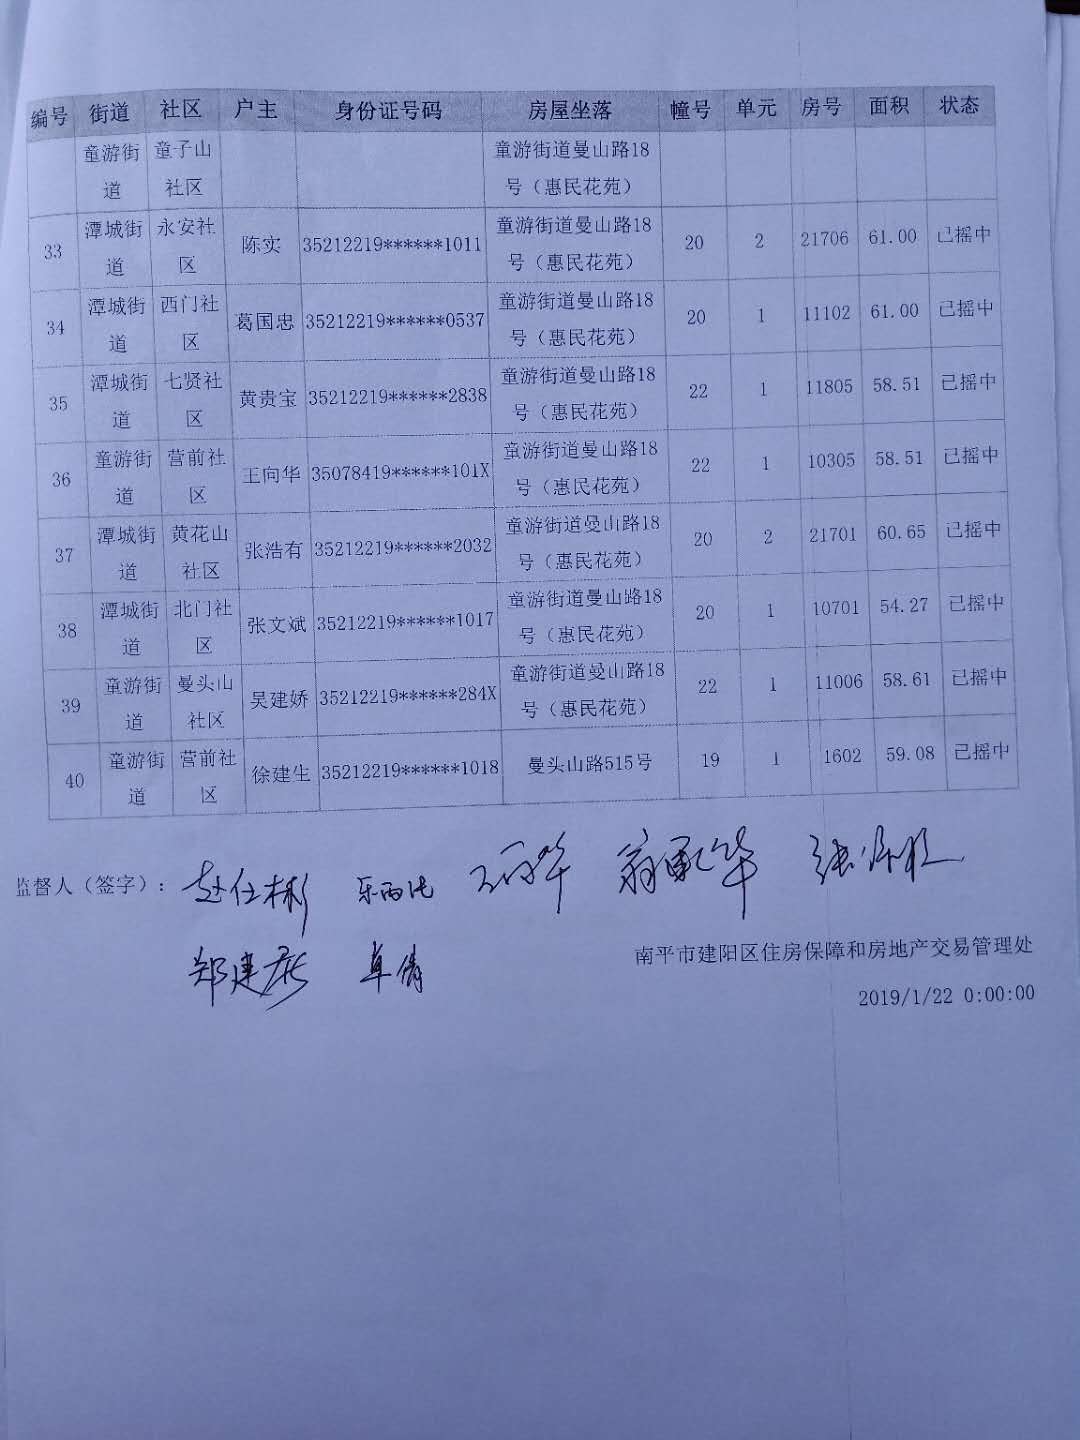 编号 街道 社区 户主 身份证号码 房屋坐落 幢号 单元 房号 面积 状态
童游街 童子山 童游街道曼山路18
道 社区 号（惠民花苑）
潭城街 永安社 童游街道曼山路18
33 陈实 35212219******1011 20 2 21706 61.00 已摇中
道 区 号（惠民花苑）
潭城街 西门社 童游街道曼山路18
34 葛国忠 35212219******0537 20 1 11102 61.00 已摇中
道 区 号（惠民花苑）
潭城街 七贤社 童游街道曼山路18
35 黄贵宝 35212219******2838 22 1 11805 58.51 已摇中
道 区 号（惠民花苑）
童游街 营前社 童游街道曼山路18
36 王向华 35078419******101X 22 1 10305 58.51 已摇中
道 区 号（惠民花苑）
潭城街 黄花山 童游街道曼山路18
37 张浩有 35212219******2032 20 2 21701 60.65 已摇中
道 社区 号（惠民花苑）
潭城街 北门社 童游街道曼山路18
38 张文斌 35212219******1017 20 1 10701 54.27 已摇中
道 区 号（惠民花苑）
童游街 曼头山 童游街道曼山路18
39 吴建娇 35212219******284X 22 1 11006 58.61 已摇中
道 社区 号（惠民花苑）
童游街 营前社
40 徐建生 35212219******1018 曼头山路515号 19 1 1602 59.08 已摇中
道 区
监督人（签字）：赵仕彬
郑建彪 卓倩
南平市建阳区住房保障和房地产交易管理处
2019/1/22 0:00:00